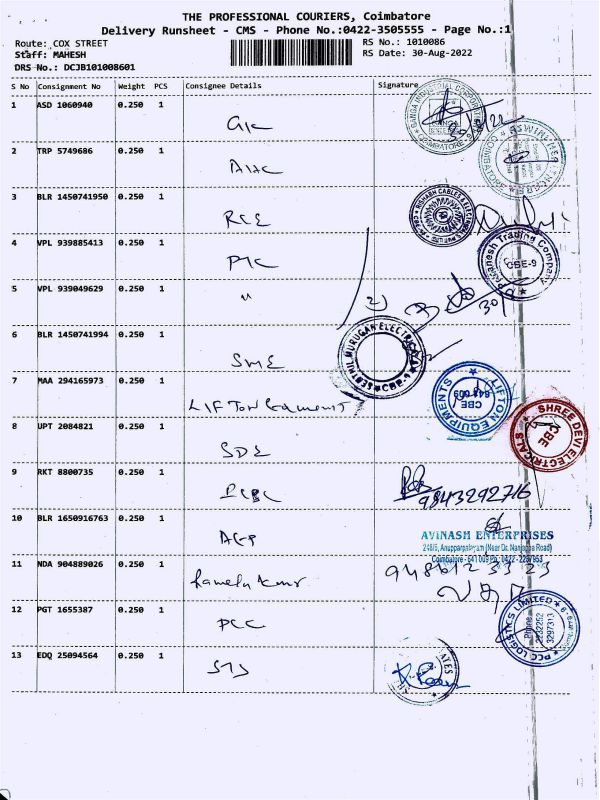 THE PROFESSIONAL COURIERS, Coimbatore
Delivery Runsheet - CMS - Phone No.:0422-3505555 - Page No.:1
Route: COX STREET
RS No.: 1010086
Staff: MAHESH
RS Date: 30-Aug-2022
DRS No.: DCJB101008601
S No Consignment No Weight PCS Consignee Details Signature
1 ASD 1060940 0.250 1 GIC
2 TRP 5749686 0.250 1
3 BLR 1450741950 0.250 1 RCE
4 VPL 939885413 0.250 1 PTC
5 VPL 939049629 0.250 1 "
6 BLR 1450741994 0.250 1 SME
7 MAA 294165973 0.250 1 LIFTON Equipments
8 UPT 2084821 0.250 1 SDE
9 RKT 8800735 0.250 1
10 BLR 1650916763 0.250 1 AEP
11 NDA 904889026 0.250 1
12 PGT 1655387 0.250 1 PCC
13 EDQ 25094564 0.250 1 STS
GANGA INDUSTRIAL CORPORATION
COIMBATORE
RISHABH CABLES & ELECTRICALS
Ganesh Trading Company
CBE-9
THIRUMURUGAN ELECTRICALS
CBE-9
LIFTON EQUIPMENTS
CBE
641 009
SHREE DEVI ELECTRICALS
CBE
9843292716
AVINASH ENTERPRISES
248/5, Anupparpalayam (Near Dr. Nanjappa Road)
Coimbatore - 641 009
9486123323
PCC LOGISTICS LIMITED
Phone
2232252
3297313